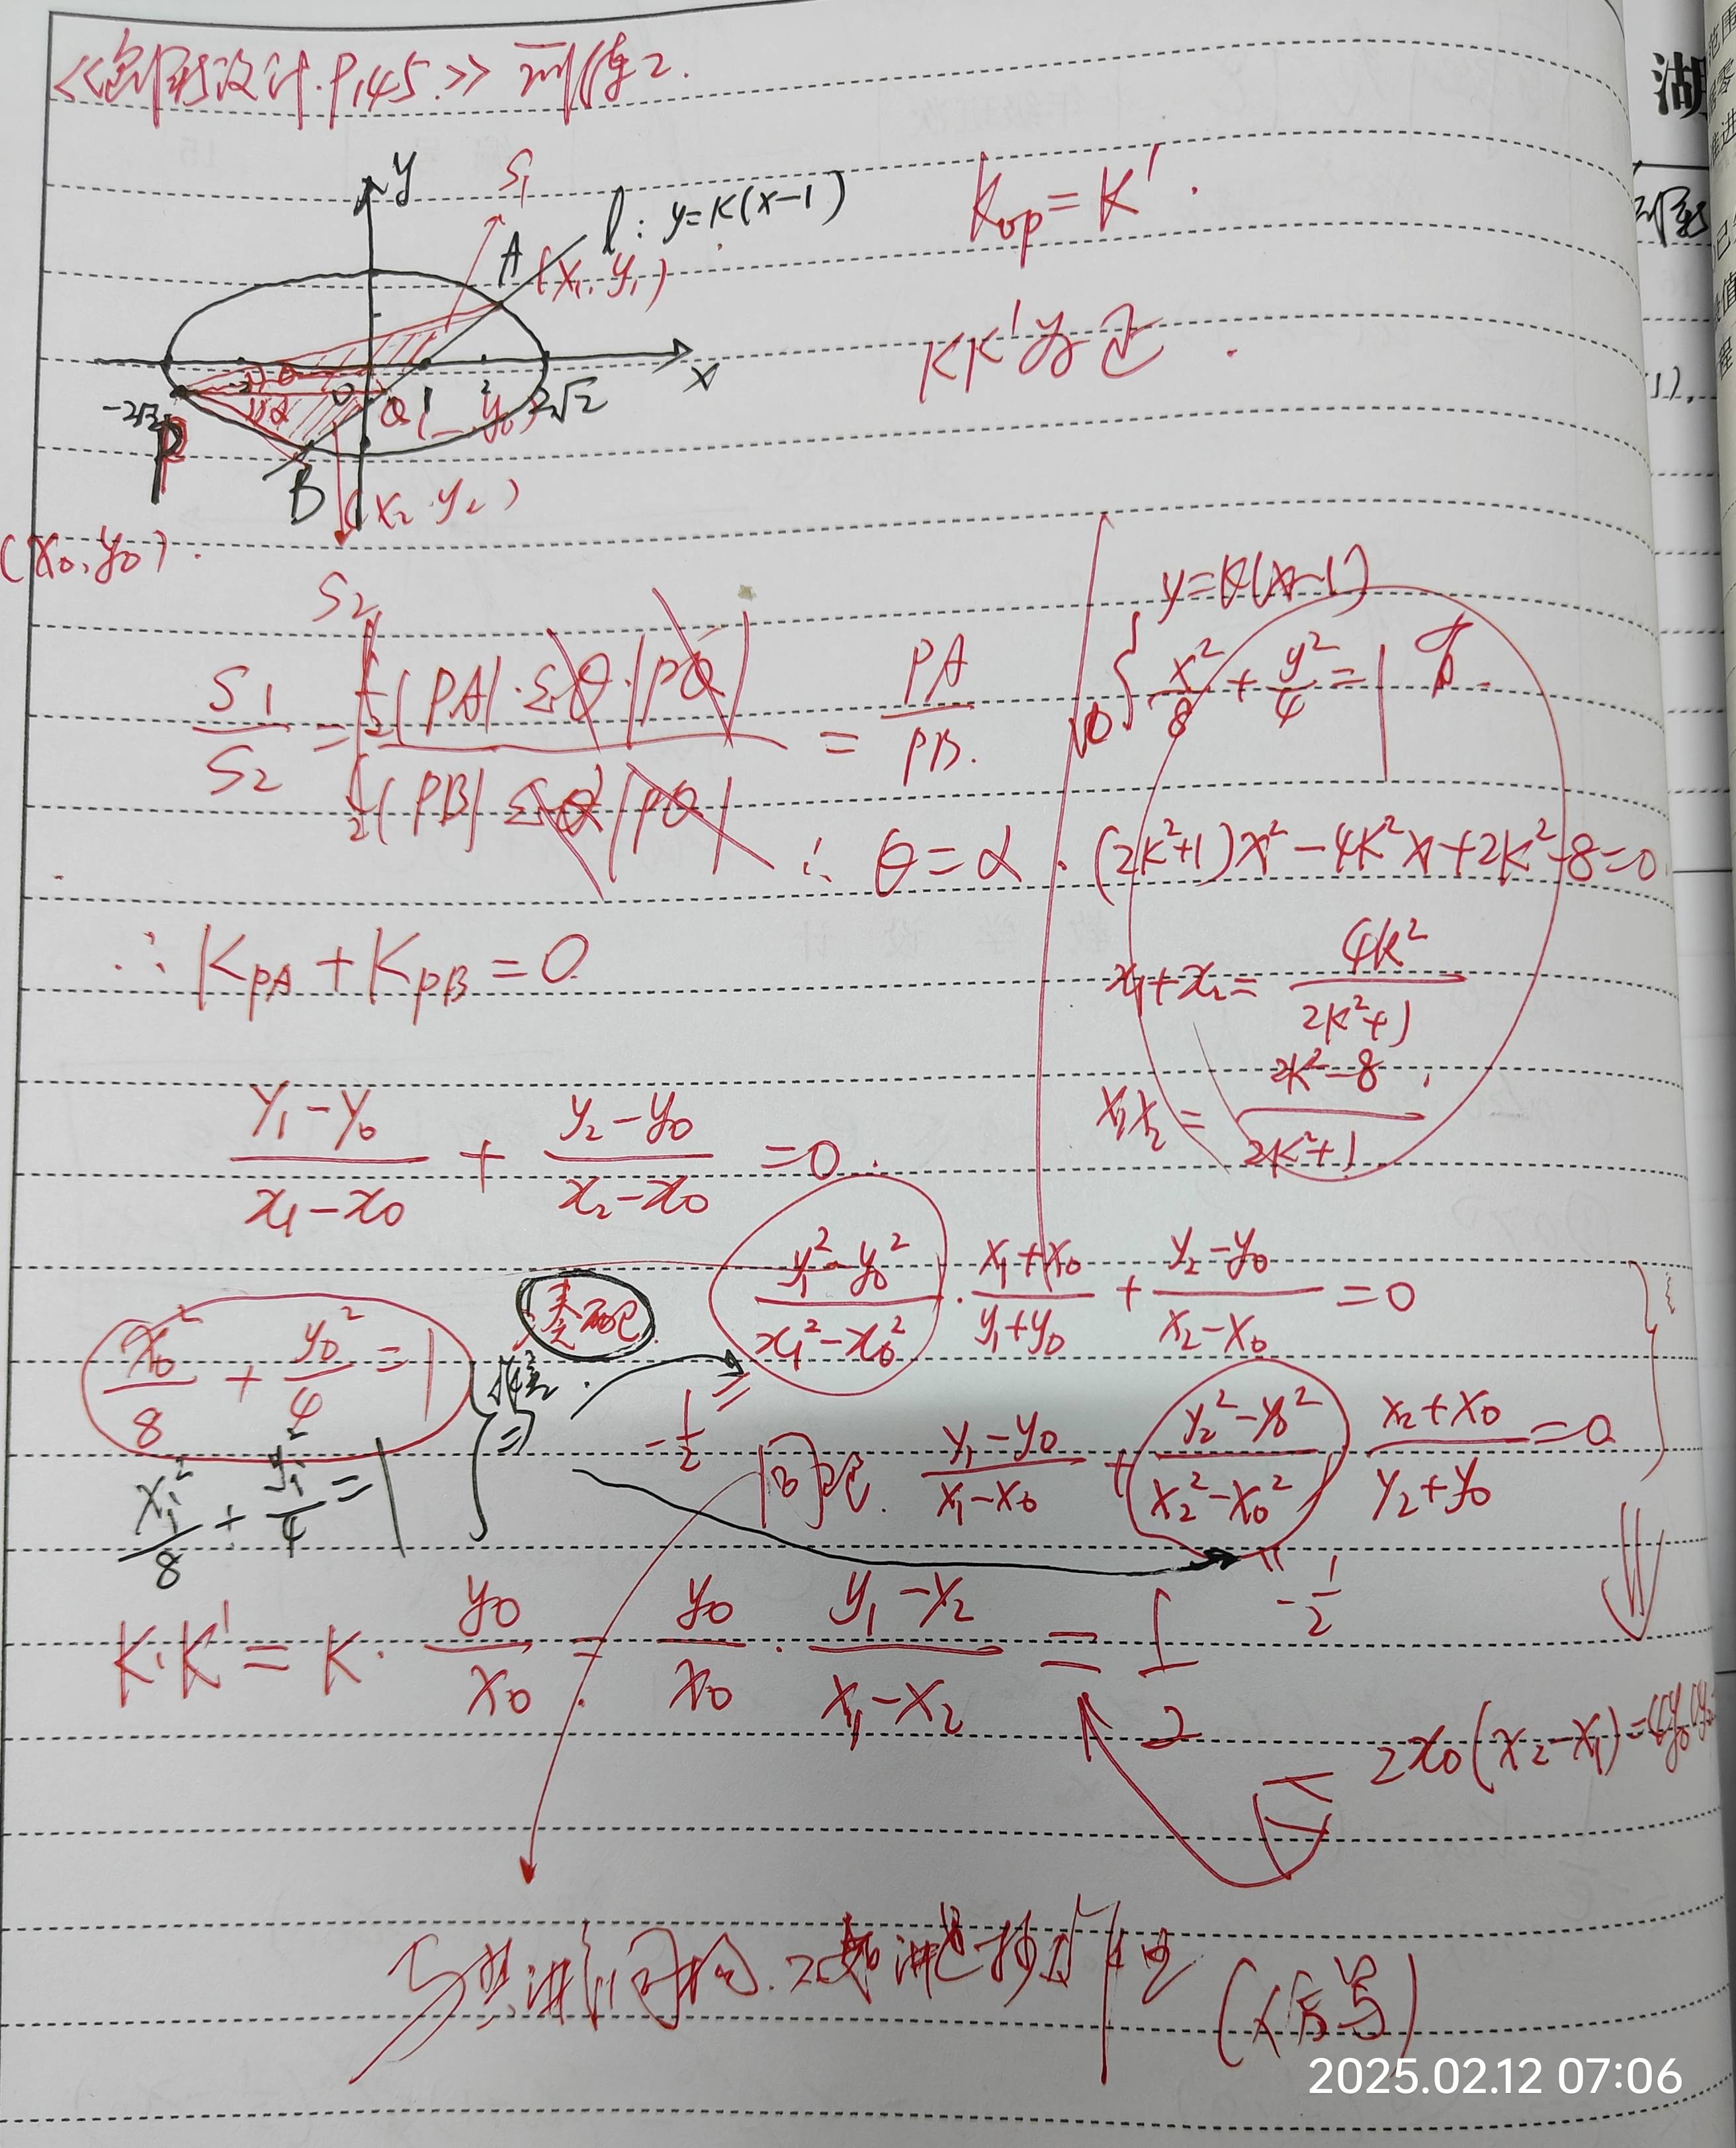 《创新设计.P145.》训练2.
y
S₁
l: y=k(x-1)
A (x₁, y₁)
K_OP = K'.
KK'为定.
-2
O
1
2
2√2
x
-2√2
P
Q(_ y₀)
B (x₂ y₂)
(x₀, y₀).
S₁/S₂ = (½|PA|·sinθ·|PQ|)/(½|PB| sinα |PQ|) = PA/PB.
∴ θ=α.
∴ K_PA + K_PB = 0
{ y=k(x-1)
x²/8 + y²/4 = 1
(2k²+1)x² - 4k²x + 2k² - 8 = 0.
x₁+x₂ = 4k²/(2k²+1)
x₁x₂ = (2k²-8)/(2k²+1).
(y₁-y₀)/(x₁-x₀) + (y₂-y₀)/(x₂-x₀) = 0.
凑配
(y₁²-y₀²)/(x₁²-x₀²) · (x₁+x₀)/(y₁+y₀) + (y₂-y₀)/(x₂-x₀) = 0
x₀²/8 + y₀²/4 = 1
x₁²/8 + y₁²/4 = 1
⇒
= -1/2
同理. (y₁-y₀)/(x₁-x₀) + (y₂²-y₀²)/(x₂²-x₀²) (x₂+x₀)/(y₂+y₀) = 0
= -1/2
K·K' = K· y₀/x₀ = y₀/x₀ · (y₁-y₂)/(x₁-x₂) = 1/2
2x₀(x₂-x₁) = 4y₀(y₂
2025.02.12 07:06
湖